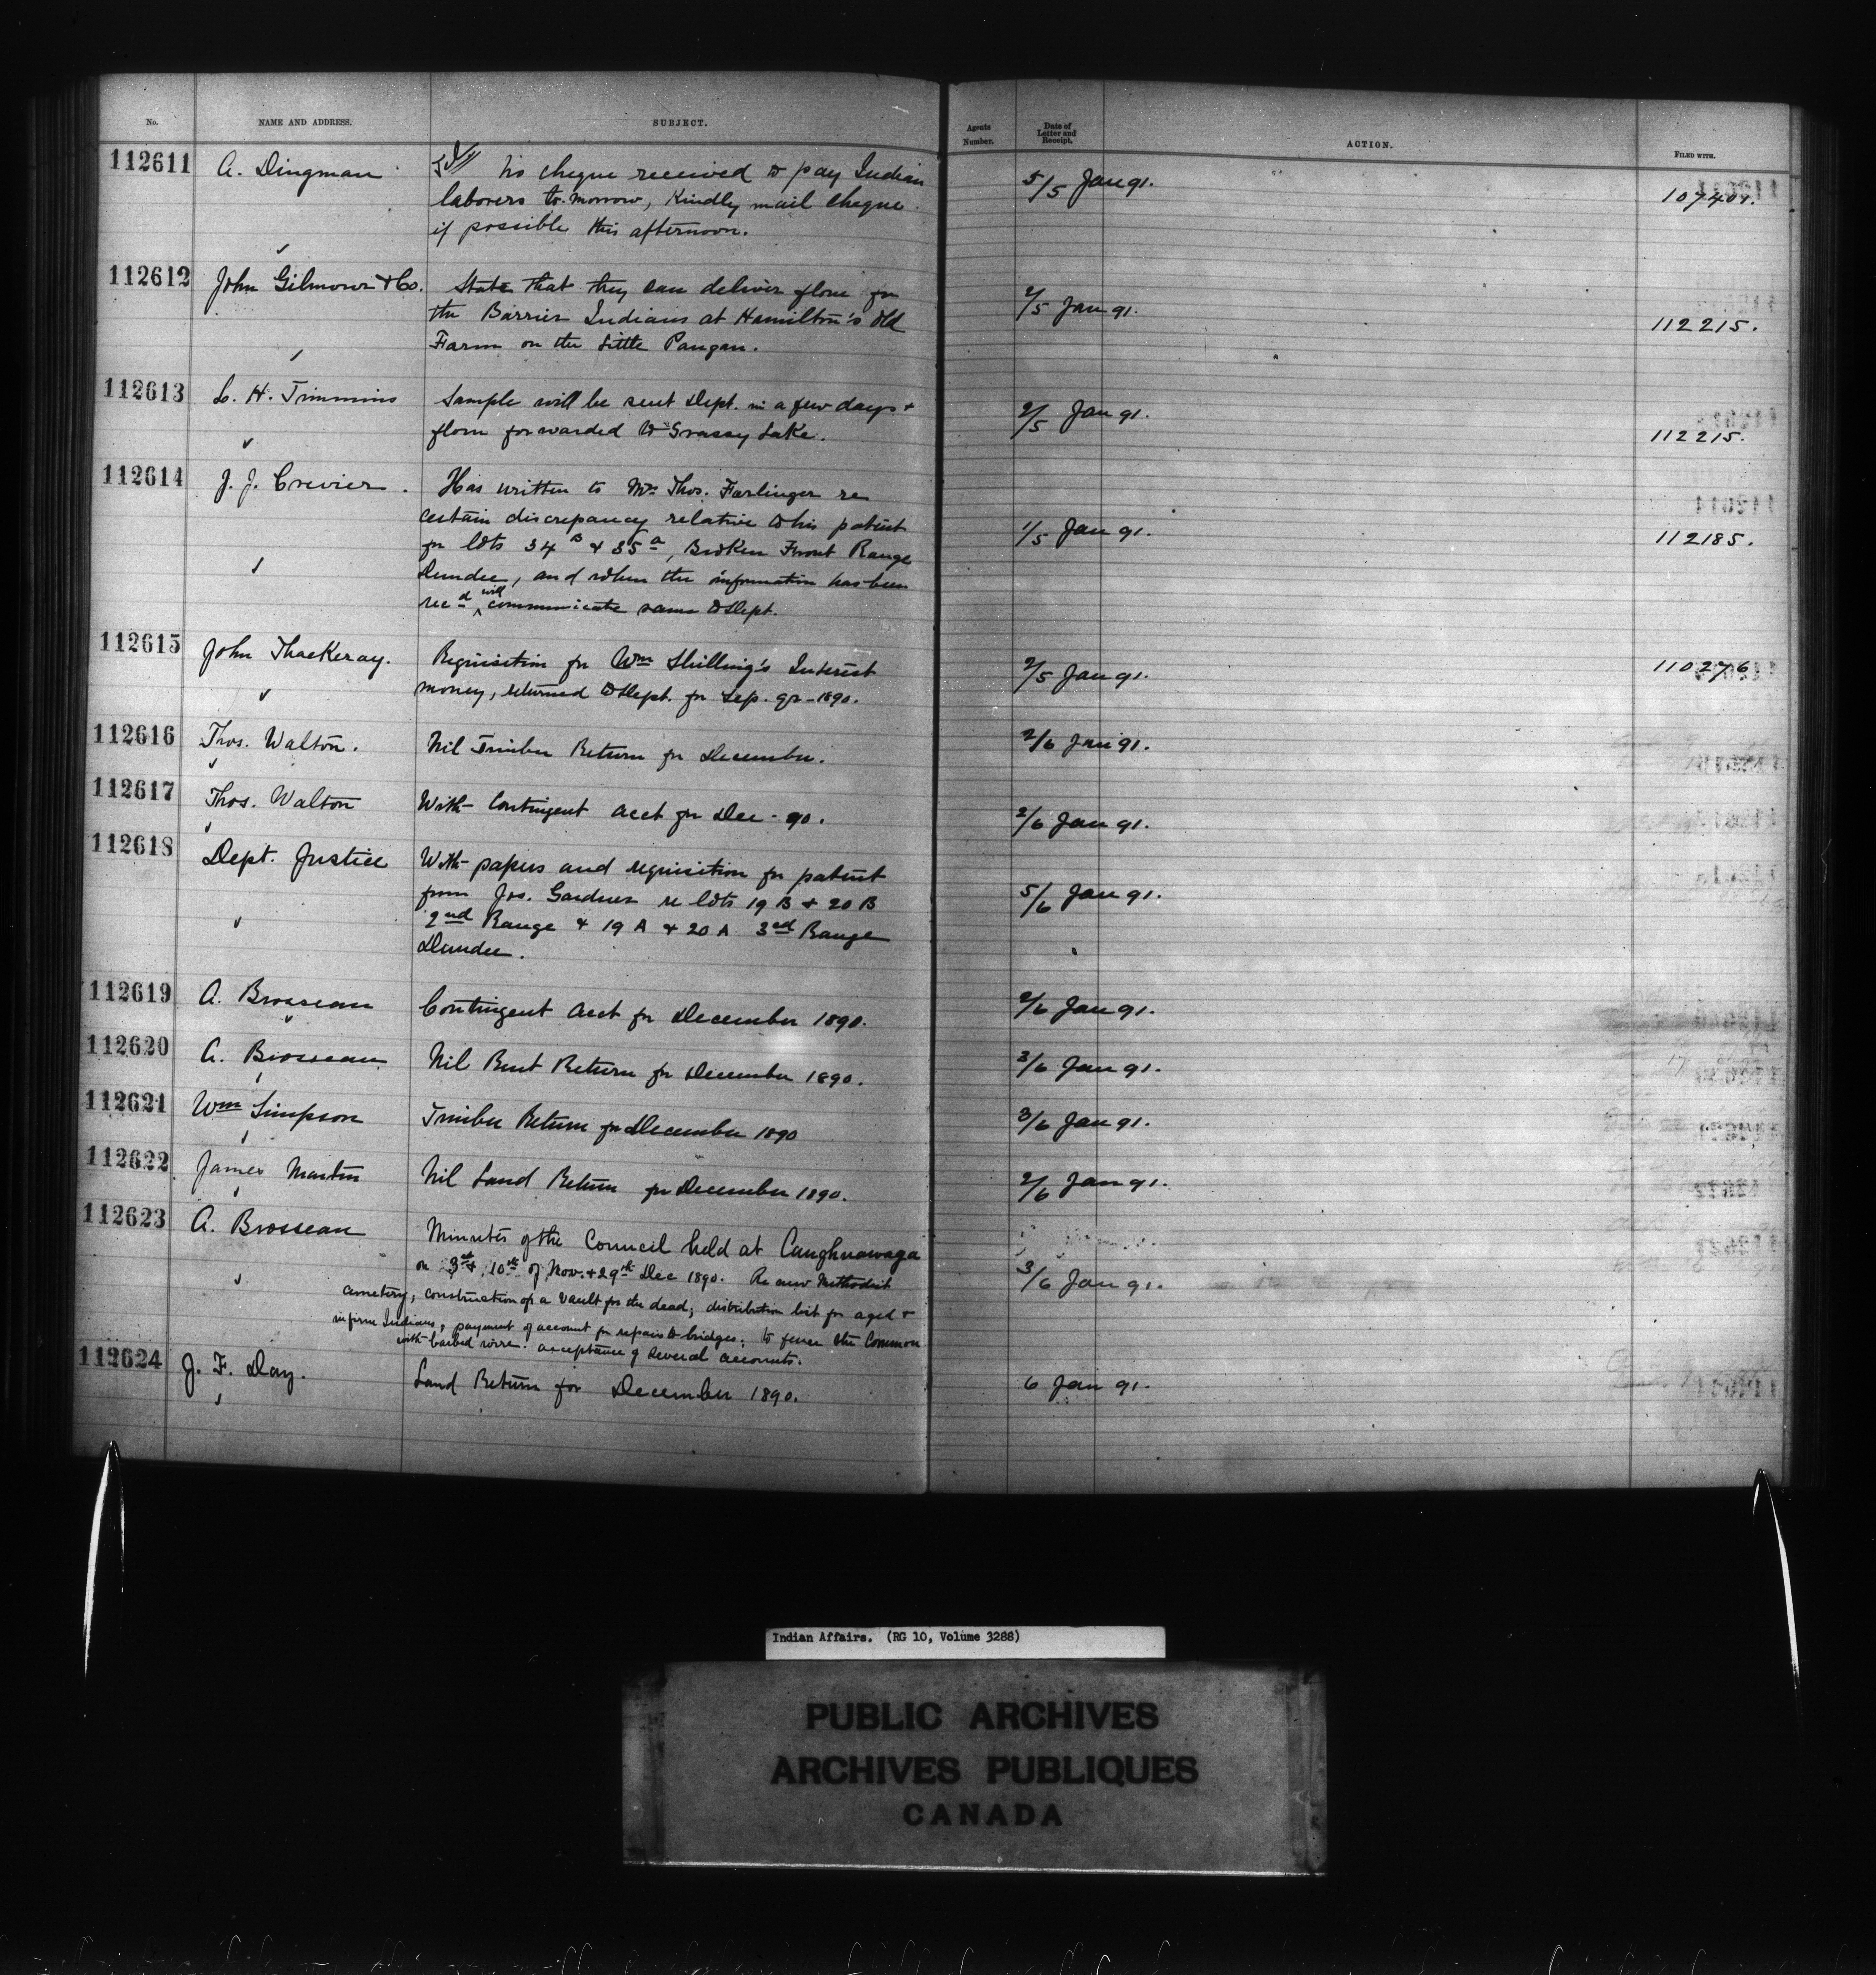 No.
NAME AND ADDRESS.
SUBJECT.
Agents Number.
Date of Letter and Receipt.
ACTION.
FILED WITH.
112611 A. Dingman No cheque received to pay Indian 5/5 Jan 91. 107401.
laborers to-morrow, Kindly mail cheque
if possible this afternoon.
112612 John Gilmour & Co. State that they can deliver flour for 2/5 Jan 91. 112215.
the Barrier Indians at Hamilton's Old
Farm on the Little Paugan.
112613 L. H. Timmins Sample will be sent Dept. in a few days & 2/5 Jan 91. 112215.
flour forwarded to Grassy Lake.
112614 J. J. Crevier. Has written to Mr Thos. Farlinger re 1/5 Jan 91. 112185.
certain discrepancy relative to his patent
for lots 34 B & 35 a, Broken Front Range
Dundee, and when the information has been
recd will communicate same to Dept.
112615 John Thackeray. Requisition for Wm Shilling's Interest 2/5 Jan 91. 110276
money, returned to Dept. for Sep. qr - 1890.
112616 Thos. Walton. Nil Timber Return for December. 2/6 Jan 91.
112617 Thos. Walton With Contingent acct for Dec - 90. 2/6 Jan 91.
112618 Dept. Justice With papers and requisition for patent 5/6 Jan 91.
from Jos. Gardner re lots 19 B & 20 B
2nd Range & 19 A & 20 A 3rd Range
Dundee.
112619 A. Brosseau Contingent Acct for December 1890. 2/6 Jan 91.
112620 A. Brosseau Nil Rent Return for December 1890. 3/6 Jan 91.
112621 Wm Simpson Timber Return for December 1890 3/6 Jan 91.
112622 James Martin Nil Land Return for December 1890. 2/6 Jan 91.
112623 A. Brosseau Minutes of the Council held at Caughnawaga 3/6 Jan 91.
on 3rd & 10th of Nov. & 29th Dec 1890. Re new Methodist
cemetery; construction of a vault for the dead; distribution list for aged &
infirm Indians; payment of account for repairs to bridges; to fence the Common
with barbed wire. acceptance of several accounts.
112624 J. F. Day. Land Return for December 1890. 6 Jan 91.
Indian Affairs. (RG 10, Volume 3288)
PUBLIC ARCHIVES
ARCHIVES PUBLIQUES
CANADA